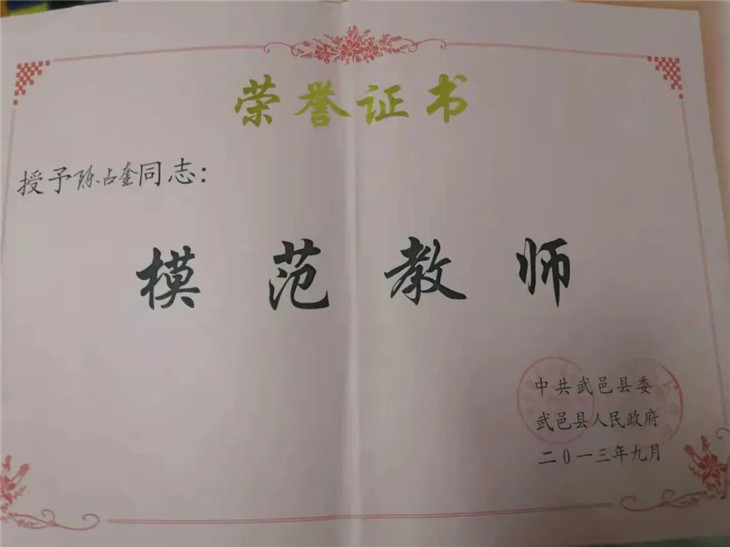 荣誉证书
授予陈占奎同志：
模范教师
中共武邑县委
武邑县人民政府
二〇一三年九月